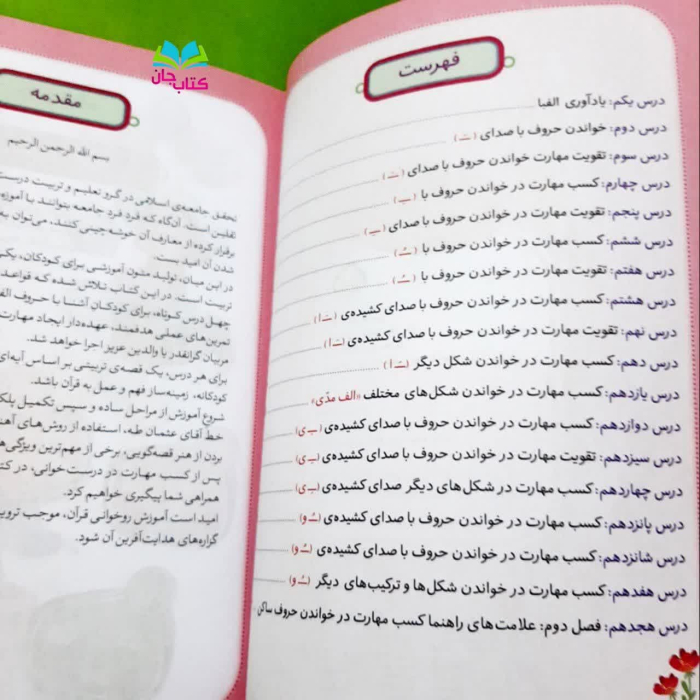 کتاب جان
فهرست
درس یکم: یادآوری الفبا
درس دوم: خواندن حروف با صدای (ـَـ)
درس سوم: تقویت مهارت خواندن حروف با صدای (ـَـ)
درس چهارم: کسب مهارت در خواندن حروف با (ـِـ)
درس پنجم: تقویت مهارت در خواندن حروف با صدای (ـِـ)
درس ششم: کسب مهارت در خواندن حروف با (ـُـ)
درس هفتم: تقویت مهارت در خواندن حروف با (ـُـ)
درس هشتم: کسب مهارت در خواندن حروف با صدای کشیده‌ی (ـَـ ا)
درس نهم: تقویت مهارت در خواندن حروف با صدای کشیده‌ی (ـَـ ا)
درس دهم: کسب مهارت در خواندن شکل دیگر (ـَـ ا)
درس یازدهم: کسب مهارت در خواندن شکل‌های مختلف «الف مدّی»
درس دوازدهم: کسب مهارت در خواندن حروف با صدای کشیده‌ی (ـِـ ی)
درس سیزدهم: تقویت مهارت در خواندن حروف با صدای کشیده‌ی (ـِـ ی)
درس چهاردهم: کسب مهارت در شکل‌های دیگر صدای کشیده‌ی (ـِـ ی)
درس پانزدهم: کسب مهارت در خواندن حروف با صدای کشیده‌ی (ـُـ و)
درس شانزدهم: کسب مهارت در خواندن حروف با صدای کشیده‌ی (ـُـ و)
درس هفدهم: کسب مهارت در خواندن شکل‌ها و ترکیب‌های دیگر (ـُـ و)
درس هجدهم: فصل دوم: علامت‌های راهنما کسب مهارت در خواندن حروف ساکن
مقدمه
بسم الله الرحمن الرحیم
تحقق جامعه‌ی اسلامی در گرو تعلیم و تربیت درست
ثقلین است. آنگاه که فرد فرد جامعه بتوانند با آموزه
برقرار کرده از معارف آن خوشه‌چینی کنند، می‌توان به
شدن آن امید بست.
در این میان، تولید متون آموزشی برای کودکان، یکی
تربیت است. در این کتاب تلاش شده که قواعد
چهل درس کوتاه، برای کودکان آشنا با حروف الف
تمرین‌های عملی هدفمند، عهده‌دار ایجاد مهارت
مربیان گرانقدر یا والدین عزیز اجرا خواهد شد.
برای هر درس، یک قصه‌ی تربیتی بر اساس آیه‌ای
کودکانه، زمینه‌ساز فهم و عمل به قرآن باشد.
شروع آموزش از مراحل ساده و سپس تکمیل پلکا
خط آقای عثمان طه، استفاده از روش‌های آهنـ
بردن از هنر قصه‌گویی، برخی از مهم‌ترین ویژگی‌ها
پس از کسب مهارت در درست‌خوانی، در کتا
همراهی شما پیگیری خواهیم کرد.
امید است آموزش روخوانی قرآن، موجب ترویـ
گزاره‌های هدایت‌آفرین آن شود.